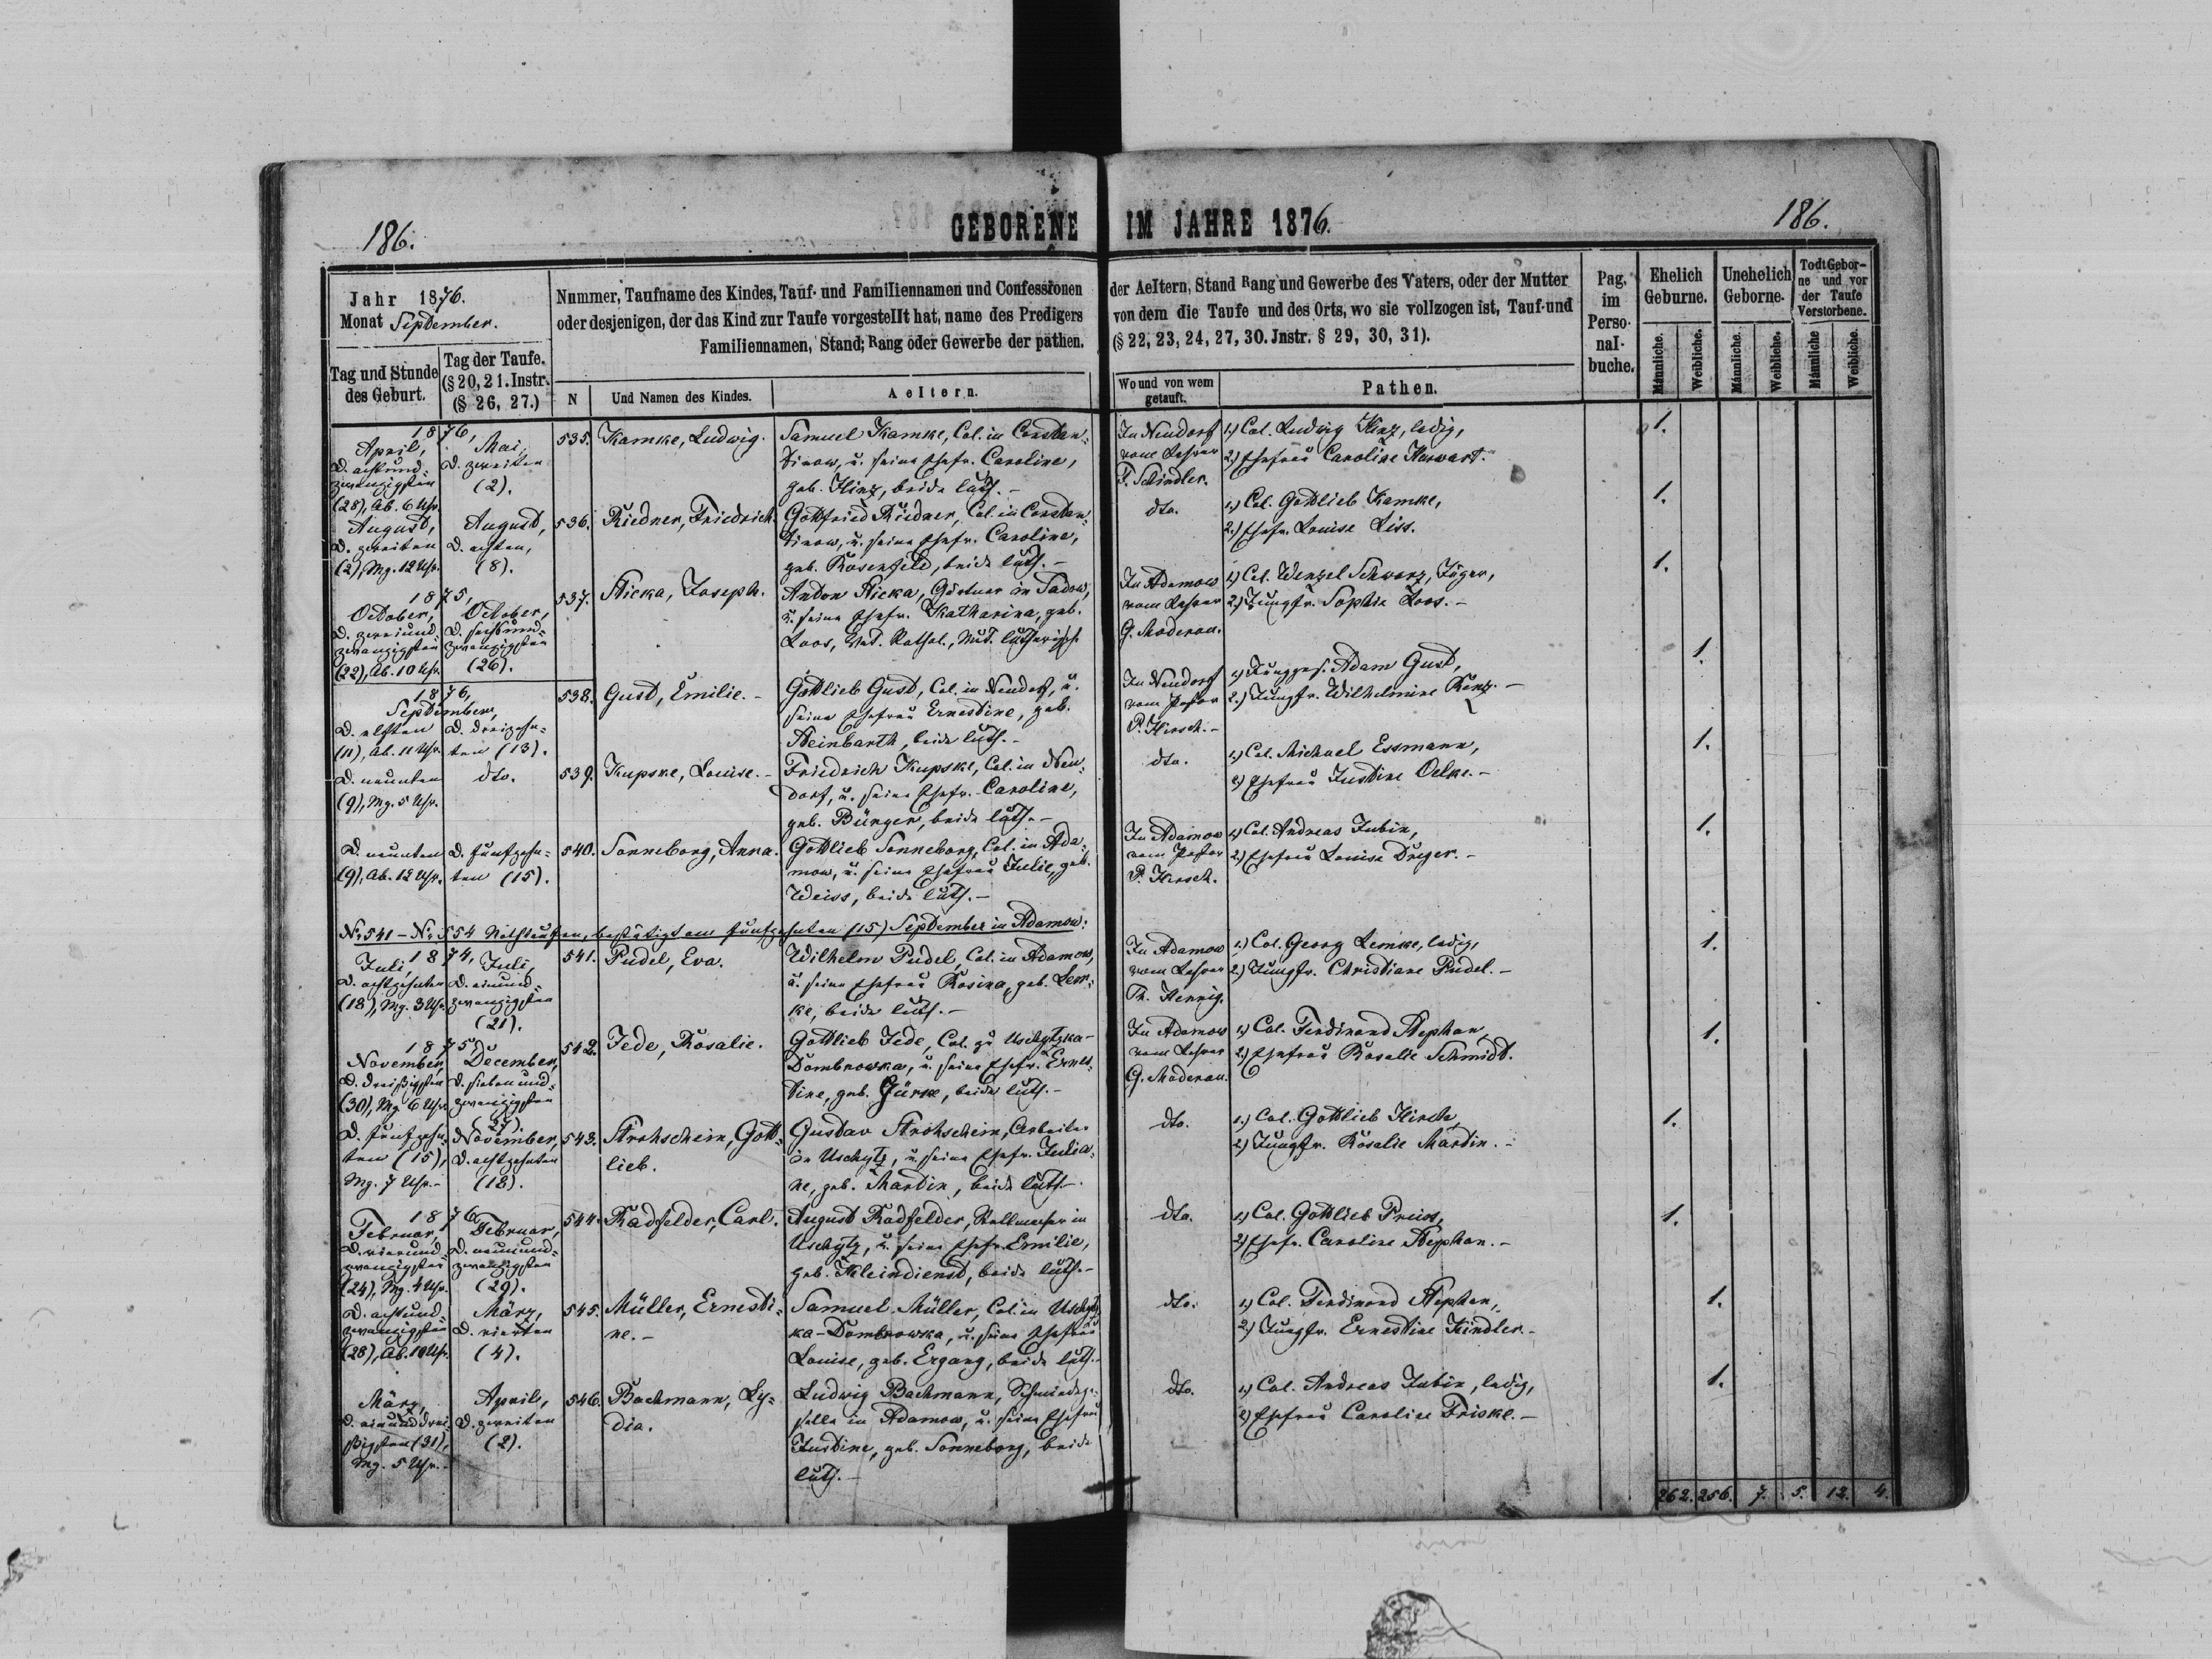 186.
GEBORENE IM JAHRE 1876.
186.
Jahr 1876.
Monat September.
Tag und Stunde des Geburt.
Tag der Taufe. (§ 20, 21. Instr. (§ 26, 27.)
Nummer, Taufname des Kindes, Tauf- und Familiennamen und Confessionen der Aeltern, Stand Rang und Gewerbe des Vaters, oder der Mutter
oder desjenigen, der das Kind zur Taufe vorgestellt hat, name des Predigers von dem die Taufe und des Orts, wo sie vollzogen ist, Tauf-und
Familiennamen, Stand; Rang oder Gewerbe der päthen. (§ 22, 23, 24, 27, 30. Jnstr. § 29, 30, 31).
N
Und Namen des Kindes.
Aeltern.
Wo und von wem getauft.
Pathen.
Pag. im Perso-nal-buche.
Ehelich Geburne.
Unehelich Geborne.
Todt Gebor-ne und vor der Taufe Verstorbene.
Männliche.
Weibliche.
Männliche.
Weibliche.
Männliche
Weibliche.
1876,
April,
D. achtund-
zwanzigsten
(28), Ab. 6 Uhr.
Mai,
D. zweiten
(2).
535.
Kamke, Ludwig.
Samuel Kamke, Col. in Constan-
tinow, u. seine Ehefr. Caroline,
geb. Hinz, beide luth. -
In Neudorf
vom Lehrer
F. Schindler.
1.) Col. Ludwig Hinz, ledig,
2.) Ehefrau Caroline Harwart.
1.
August,
D. zweiten
(2), Mg. 12 Uhr.
August,
D. achten,
(8).
536.
Riedner, Friedrich.
Gottfried Riedner, Col. in Constan-
tinow, u. seine Ehefr. Caroline,
geb. Rosenfeld, beide luth. -
dto.
1.) Col. Gottlieb Kamke,
2.) Ehefr. Louise Liss.
1.
1875,
October,
D. zweiund-
zwanzigsten
(22), Ab. 10 Uhr.
October,
D. sechsund-
zwanzigsten
(26).
537.
Hicka, Joseph.
Anton Hicka, Gärtner in Sadow,
u. seine Ehefr. Katharina, geb.
Loos, Vat. Kathol., Mut. lutherisch
In Adamow
vom Lehrer
G. Moderau.
1.) Col. Wenzel Schwarz, Jäger,
2.) Jungfr. Sophie Loos. -
1.
1876,
September,
D. elften
(11), Ab. 11 Uhr.
D. dreizehn-
ten (13).
538.
Gust, Emilie. -
Gottlieb Gust, Col. in Neudorf, u.
seine Ehefrau Ernestine, geb.
Steinbarth, beide luth. -
In Neudorf
vom Pastor
P. Hirsch. -
1.) Jungges. Adam Gust,
2.) Jungfr. Wilhelmine Renz. -
1.
D. neunten
(9), Mg. 5 Uhr.
dto.
539.
Kupske, Louise. -
Friedrich Kupske, Col. in Neu-
dorf, u. seine Ehefr. Caroline,
geb. Bürger, beide luth. -
dto.
1.) Col. Michael Essmann,
2.) Ehefrau Justine Oelke. -
1.
D. neunten
(9), Ab. 12 Uhr.
D. fünfzehn-
ten (15).
540.
Sonneborg, Anna.
Gottlieb Sonneborg, Col. in Ada-
mow, u. seine Ehefrau Julie, geb.
Weiss, beide luth. -
In Adamow
vom Pastor
P. Hirsch.
1.) Col. Andreas Jubin,
2.) Ehefrau Louise Dreger. -
1.
No 541 - No 554 Nothtaufen, bestätigt am fünfzehnten (15) September in Adamow:
1874,
Juli,
D. achtzehnten
(18), Mg. 3 Uhr.
Juli,
D. einund-
zwanzigsten
(21).
541.
Pudel, Eva.
Wilhelm Pudel, Col. in Adamow,
u. seine Ehefrau Rosina, geb. Lem-
ke, beide luth. -
In Adamow
vom Lehrer
Th. Hennig.
1.) Col. Georg Lemke, ledig,
2.) Jungfr. Christiane Pudel. -
1.
1875,
November,
D. dreißigsten
(30), Mg. 6 Uhr.
December,
D. siebenund-
zwanzigsten
(27).
542.
Jede, Rosalie.
Gottlieb Jede, Col. zu Uschytzka-
Dombrowka, u. seine Ehefr. Ernes-
tine, geb. Gürke, beide luth. -
In Adamow
vom Lehrer
G. Moderau.
1.) Col. Ferdinand Stephan,
2.) Ehefrau Rosalie Schmidt.
1.
D. fünfzehn-
ten (15),
Mg. 7 Uhr. -
November,
D. achtzehnten
(18).
543.
Strohschein, Gott-
lieb.
Gustav Strohschein, Arbeiter
in Uschytz, u. seine Ehefr. Julia-
ne, geb. Martin, beide luth. -
dto.
1.) Col. Gottlieb Hirch,
2.) Jungfr. Rosalie Martin. -
1.
1876,
Februar,
D. vierund-
zwanzigsten
(24), Mg. 4 Uhr.
Februar,
D. neunund-
zwanzigsten
(29).
544.
Radfelder, Carl.
August Radfelder, Stellmacher in
Uschytz, u. seine Ehefr. Emilie,
geb. Kleindienst, beide luth. -
dto.
1.) Col. Gottlieb Preiss,
2.) Ehefr. Caroline Stephan. -
1.
D. achtund-
zwanzigsten
(28), Ab. 10 Uhr.
März,
D. vierten
(4).
545.
Müller, Ernesti-
ne. -
Samuel Müller, Col. in Uschytz-
ka-Dombrowka, u. seine Ehefrau
Louise, geb. Ergang, beide luth. -
dto.
1.) Col. Ferdinand Stephan,
2.) Jungfr. Ernestine Kindler. -
1.
März,
D. einunddrei-
ßigsten (31),
Mg. 5 Uhr. -
April,
D. zweiten
(2).
546.
Bachmann, Ly-
dia.
Ludwig Bachmann, Schmiedege-
selle in Adamow, u. seine Ehefrau
Justine, geb. Sonneborg, beide
luth. -
dto.
1.) Col. Andreas Jubin, ledig,
2.) Ehefrau Caroline Friske. -
1.
262. 256. 7. 5. 12. 4.